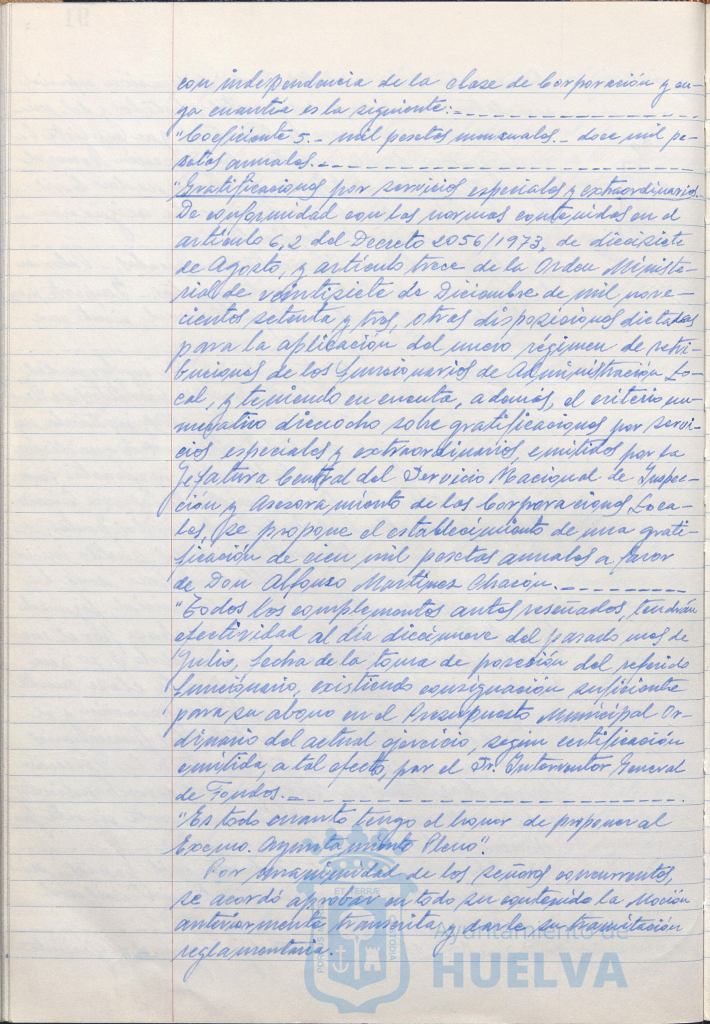 con independencia de la clase de Corporación y cu-
ya cuantía es la siguiente:
"Coeficiente 5.- mil pesetas mensuales.- doce mil pe-
setas anuales.
"Gratificaciones por servicios especiales y extraordinarios.
De conformidad con las normas contenidas en el
artículo 6,2 del Decreto 2056/1973, de diecisiete
de Agosto, y artículo trece de la Orden Ministe-
rial de veintisiete de Diciembre de mil nove-
cientos setenta y tres, otras disposiciones dictadas
para la aplicación del nuevo régimen de retri-
buciones de los funcionarios de Administración Lo-
cal, y teniendo en cuenta, además, el criterio nu-
merativo dieciocho sobre gratificaciones por servi-
cios especiales y extraordinarios, emitidos por la
Jefatura Central del Servicio Nacional de Inspec-
ción y Asesoramiento de las Corporaciones Loca-
les, se propone el establecimiento de una grati-
ficación de cien mil pesetas anuales a favor
de Don Alfonso Martínez Chacón.
"Todos los complementos antes reseñados, tendrán
efectividad al día diecinueve del pasado mes de
Julio, fecha de la toma de posesión del referido
funcionario, existiendo consignación suficiente
para su abono en el Presupuesto Municipal Or-
dinario del actual ejercicio, según certificación
emitida, a tal efecto, por el Sr. Interventor General
de Fondos.
"Es todo cuanto tengo el honor de proponer al
Excmo. Ayuntamiento Pleno".
Por unanimidad de los señores concurrentes,
se acordó aprobar en todo su contenido la Moción
anteriormente transcrita y darle su tramitación
reglamentaria.
Ayuntamiento de
HUELVA